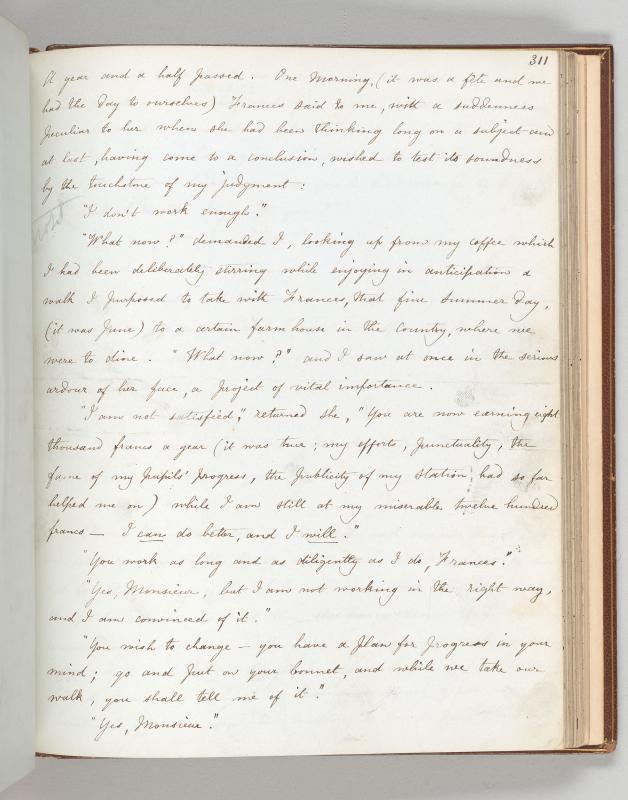 311
A year and a half passed. One morning, (it was a fête and we
had the day to ourselves) Frances said to me, with a suddenness
peculiar to her when she had been thinking long on a subject and
at last, having come to a conclusion, wished to test its soundness
by the touchstone of my judgment:
"I don't work enough."
"What now?" demanded I, looking up from my coffee which
I had been deliberately stirring while enjoying in anticipation a
walk I purposed to take with Frances, that fine summer day,
(it was June) to a certain farmhouse in the country, where we
were to dine. "What now?" and I saw at once in the serious
ardour of her face, a project of vital importance.
"I am not satisfied", returned she, "You are now earning eight
thousand francs a year (it was true; my efforts, punctuality, the
fame of my pupils' progress, the publicity of my station, had so far
helped me on) while I am still at my miserable twelve hundred
francs — I can do better, and I will."
"You work as long and as diligently as I do, Frances."
"Yes, Monsieur, but I am not working in the right way,
and I am convinced of it."
"You wish to change — you have a plan for progress in your
mind; go and put on your bonnet, and while we take our
walk, you shall tell me of it."
"Yes, Monsieur."